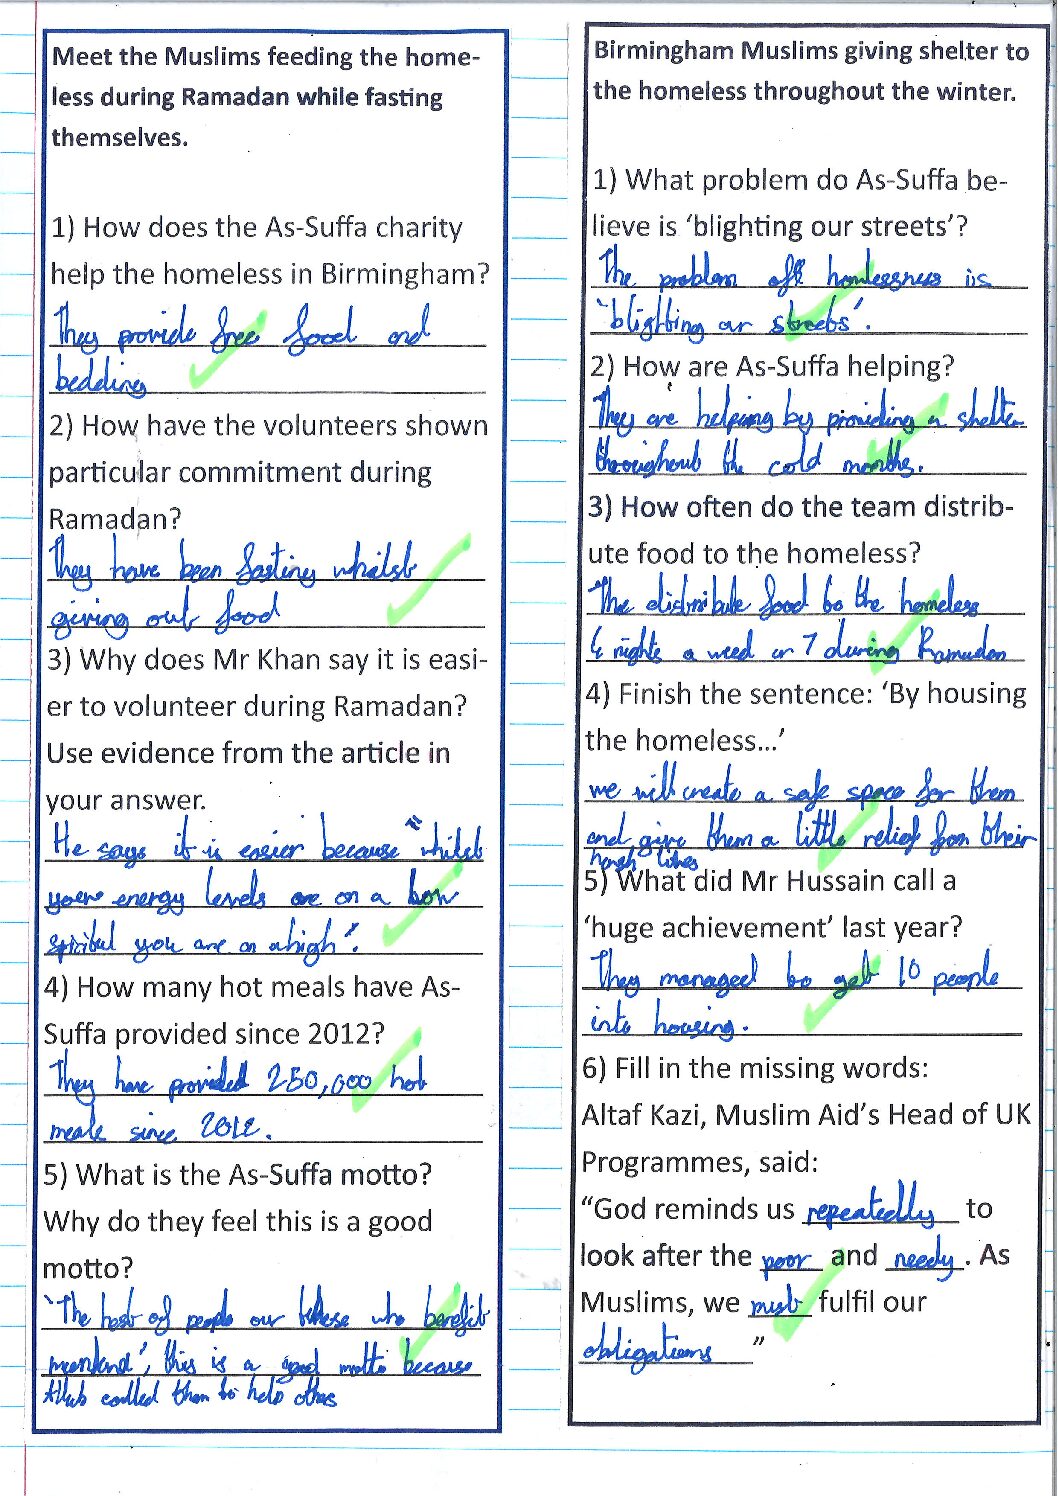 Meet the Muslims feeding the home-
less during Ramadan while fasting
themselves.
1) How does the As-Suffa charity
help the homeless in Birmingham?
They provide free food and
bedding
2) How have the volunteers shown
particular commitment during
Ramadan?
They have been fasting whilst
giving out food
3) Why does Mr Khan say it is easi-
er to volunteer during Ramadan?
Use evidence from the article in
your answer.
He says it is easier because "whilst
your energy levels are on a low
you are on a high".
4) How many hot meals have As-
Suffa provided since 2012?
They have provided 250,000 hot
meals since 2012.
5) What is the As-Suffa motto?
Why do they feel this is a good
motto?
'The best of people our these who benefit
mankind', this is a good motto because
Allah called them to help others
Birmingham Muslims giving shelter to
the homeless throughout the winter.
1) What problem do As-Suffa be-
lieve is ‘blighting our streets’?
The problem off homlessness is
'blighting our streets'.
2) How are As-Suffa helping?
They are helping by providing a shelter
throughout the cold months.
3) How often do the team distrib-
ute food to the homeless?
The distribute food to the homeless
nights a weed or 7 during Ramadan
4) Finish the sentence: ‘By housing
the homeless...’
we will create a safe space for them
and give them a little relief from their
harsh lifes
5) What did Mr Hussain call a
‘huge achievement’ last year?
They managed to get 10 people
into housing.
6) Fill in the missing words:
Altaf Kazi, Muslim Aid’s Head of UK
Programmes, said:
“God reminds us repeatedly to
look after the poor and needy. As
Muslims, we must fulfil our
obligations ”